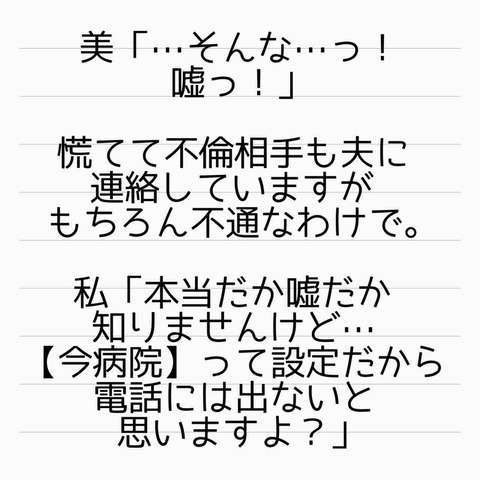 美「…そんな…っ！
嘘っ！」
慌てて不倫相手も夫に
連絡していますが
もちろん不通なわけで。
私「本当だか嘘だか
知りませんけど…
【今病院】って設定だから
電話には出ないと
思いますよ？」